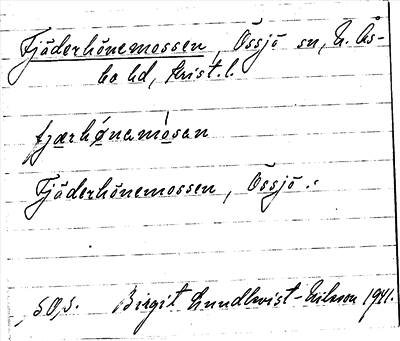 Fjöderhönemossen, Össjö sn, N. Ås-
bo hd, Krist. l.
fjærhǿnamósan
Fjöderhönemossen, Össjö :.
s.o,s. Birgit Lundkvist-Nilsson 1941.